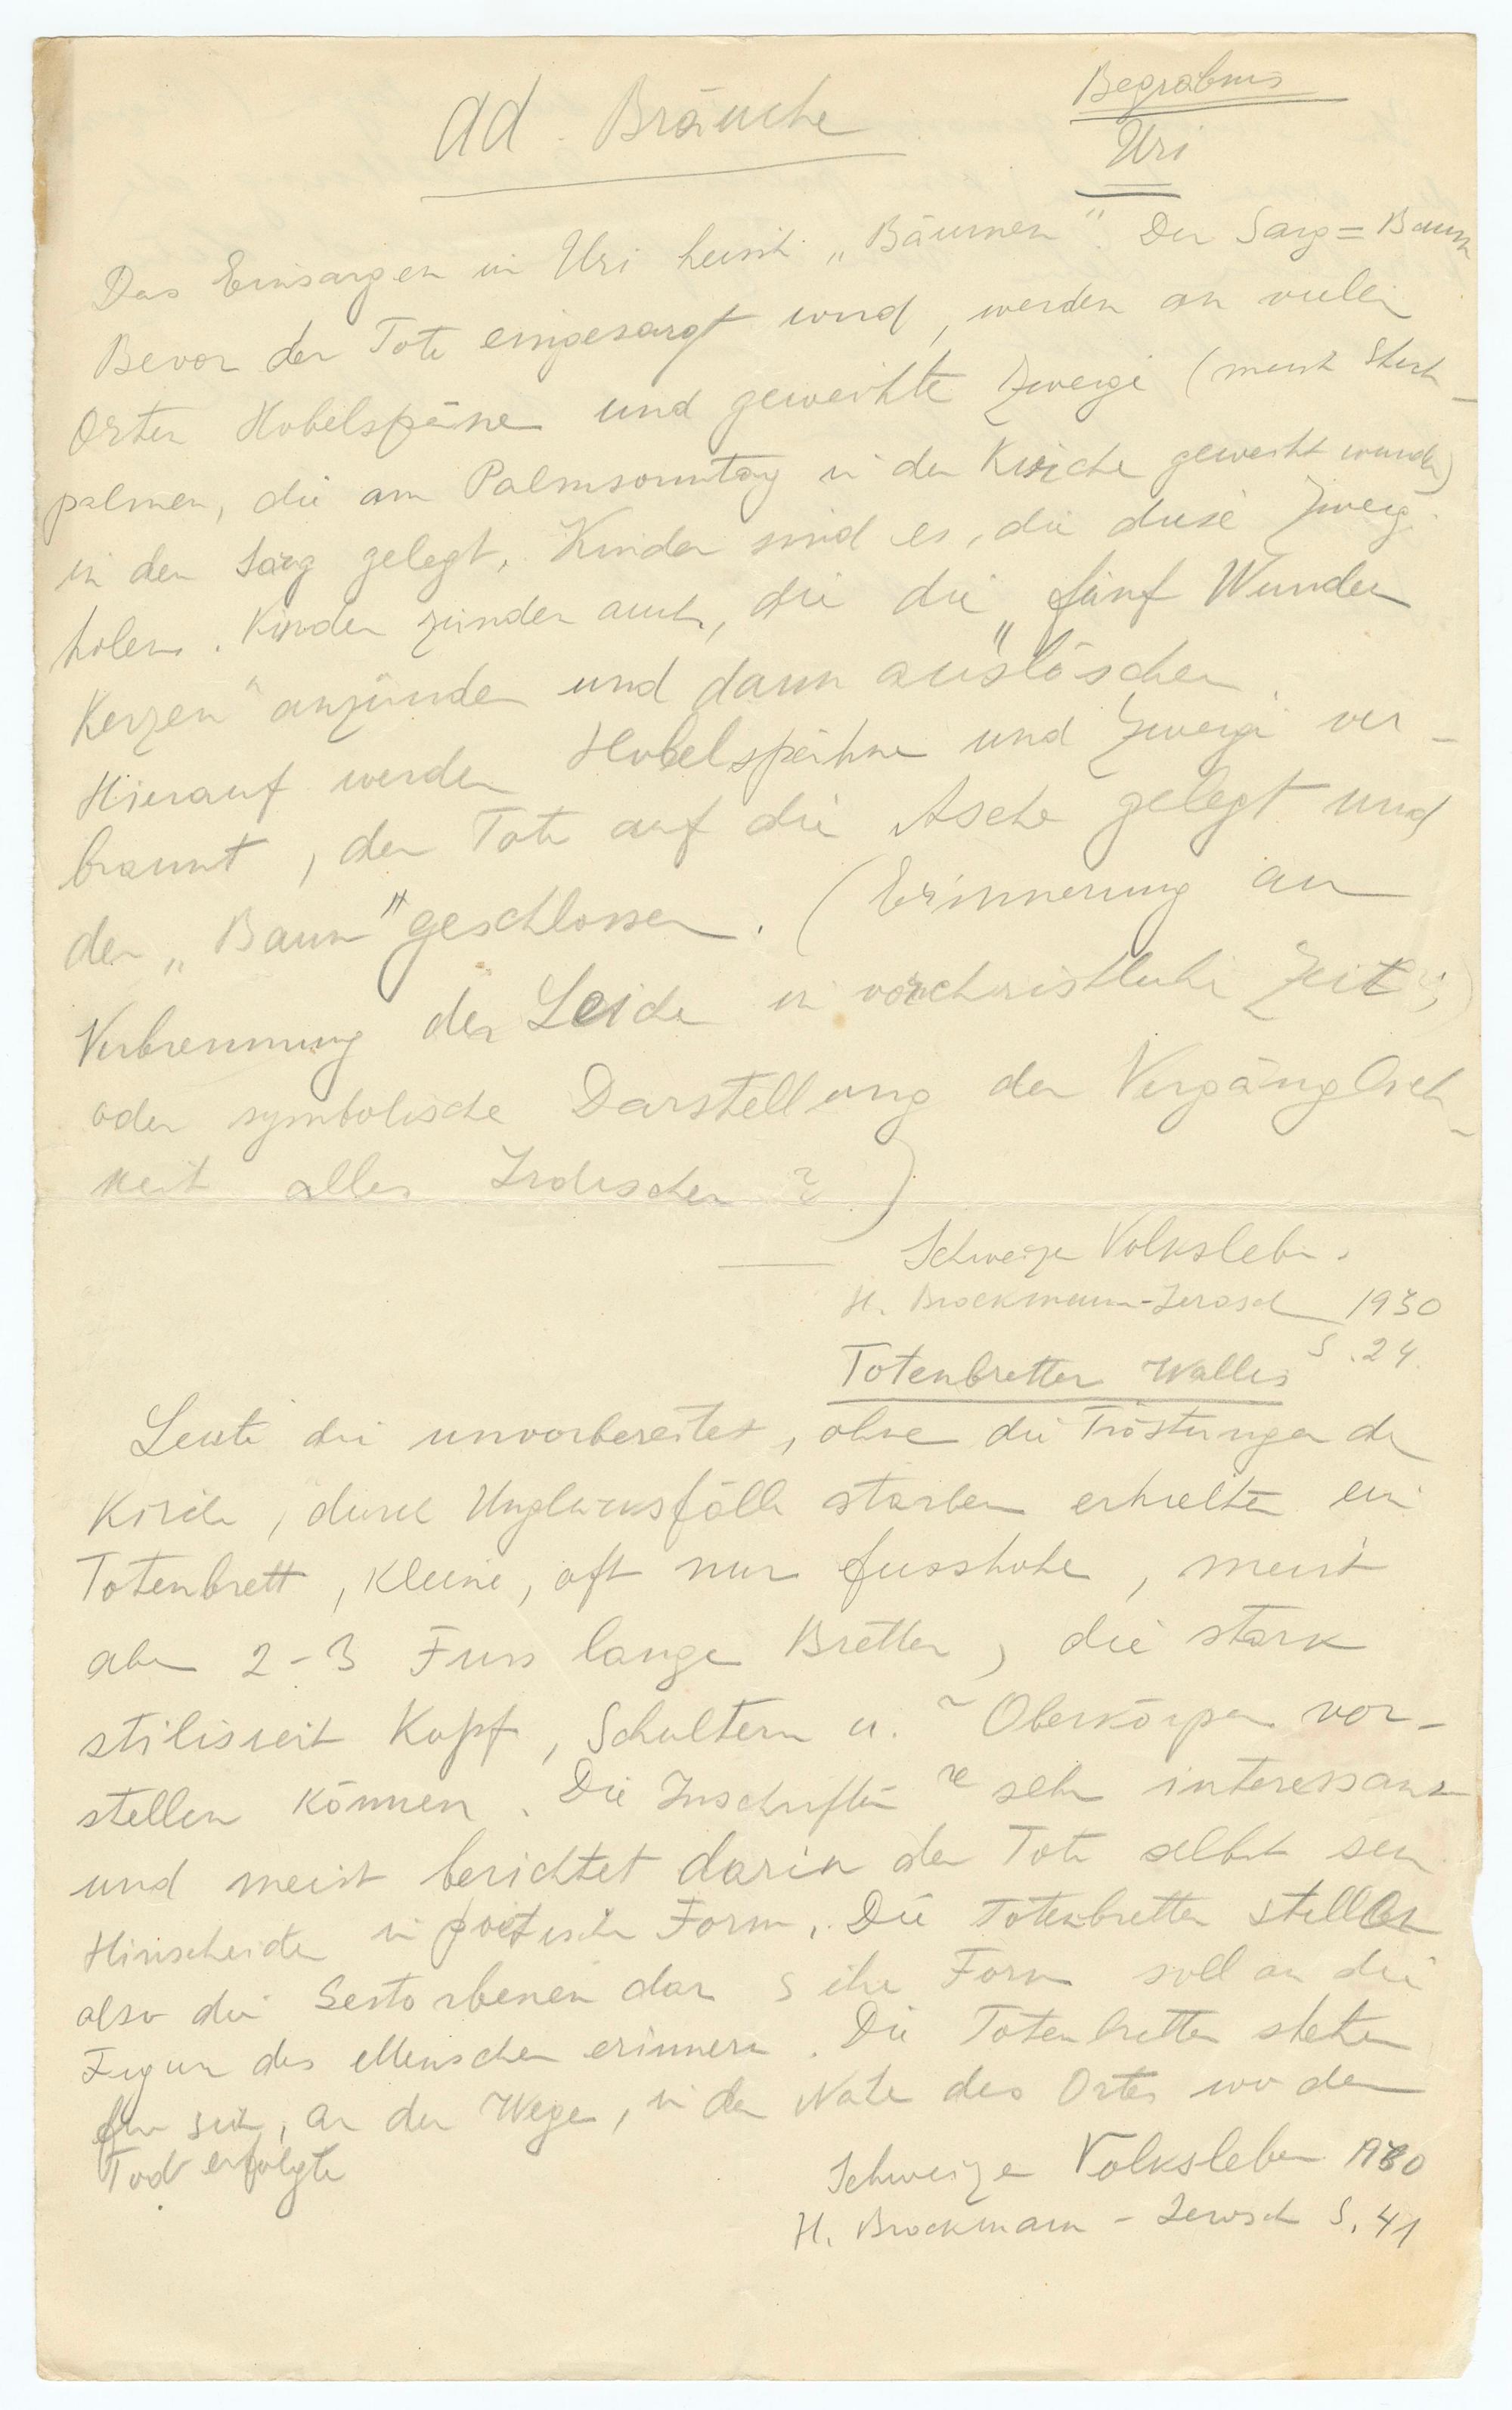 Begräbnis
ad. Bräuche
Uri
Das Einsargen in Uri heisst „Bäumen". Der Sarg = Baum
Bevor der Tote eingesargt wird, werden an vielen
Orten Hobelspäne und geweihte Zweige (meist Stech-
palmen, die am Palmsonntag in der Kirche geweiht wurden)
in den Sarg gelegt. Kinder sind es, die diese Zweige
holen. Kinder zünden auch, die die „fünf Wunden
Kerzen" anzünden und dann auslöschen.
Hierauf werden Hobelspähne und Zweige ver-
brannt, der Tote auf die Asche gelegt und
der „Baum" geschlossen. (Erinnerung an
Verbrennung der Leiche in vorchristliche Zeit,
oder symbolische Darstellung der Vergänglich-
keit alles Irdischen?)
Schweizer Volksleben.
H. Brockmann-Jerosch 1930
S. 24.
Totenbretter Wallis
Leute die unvorbereitet, ohne die Tröstungen der
Kirche, durch Unglücksfälle starben erhielten ein
Totenbrett, kleine, oft nur fusshohe, meist
aber 2-3 Fuss lange Bretter, die stark
stilisiert Kopf, Schultern u. Oberkörper vor-
stellen können. Die Inschriften sehr interessant
und meist berichtet darin der Tote selbst sein
Hinscheiden in poetischer Form. Die Totenbretter stellen
also die Gestorbenen dar ihre Form soll an die
Figur des Menschen erinnern. Die Totenbretter stehen
für sich, an den Wege, in der Nähe des Ortes wo der
Tod erfolgte
Schweizer Volksleben 1930
H. Brockmann-Jerosch S. 41